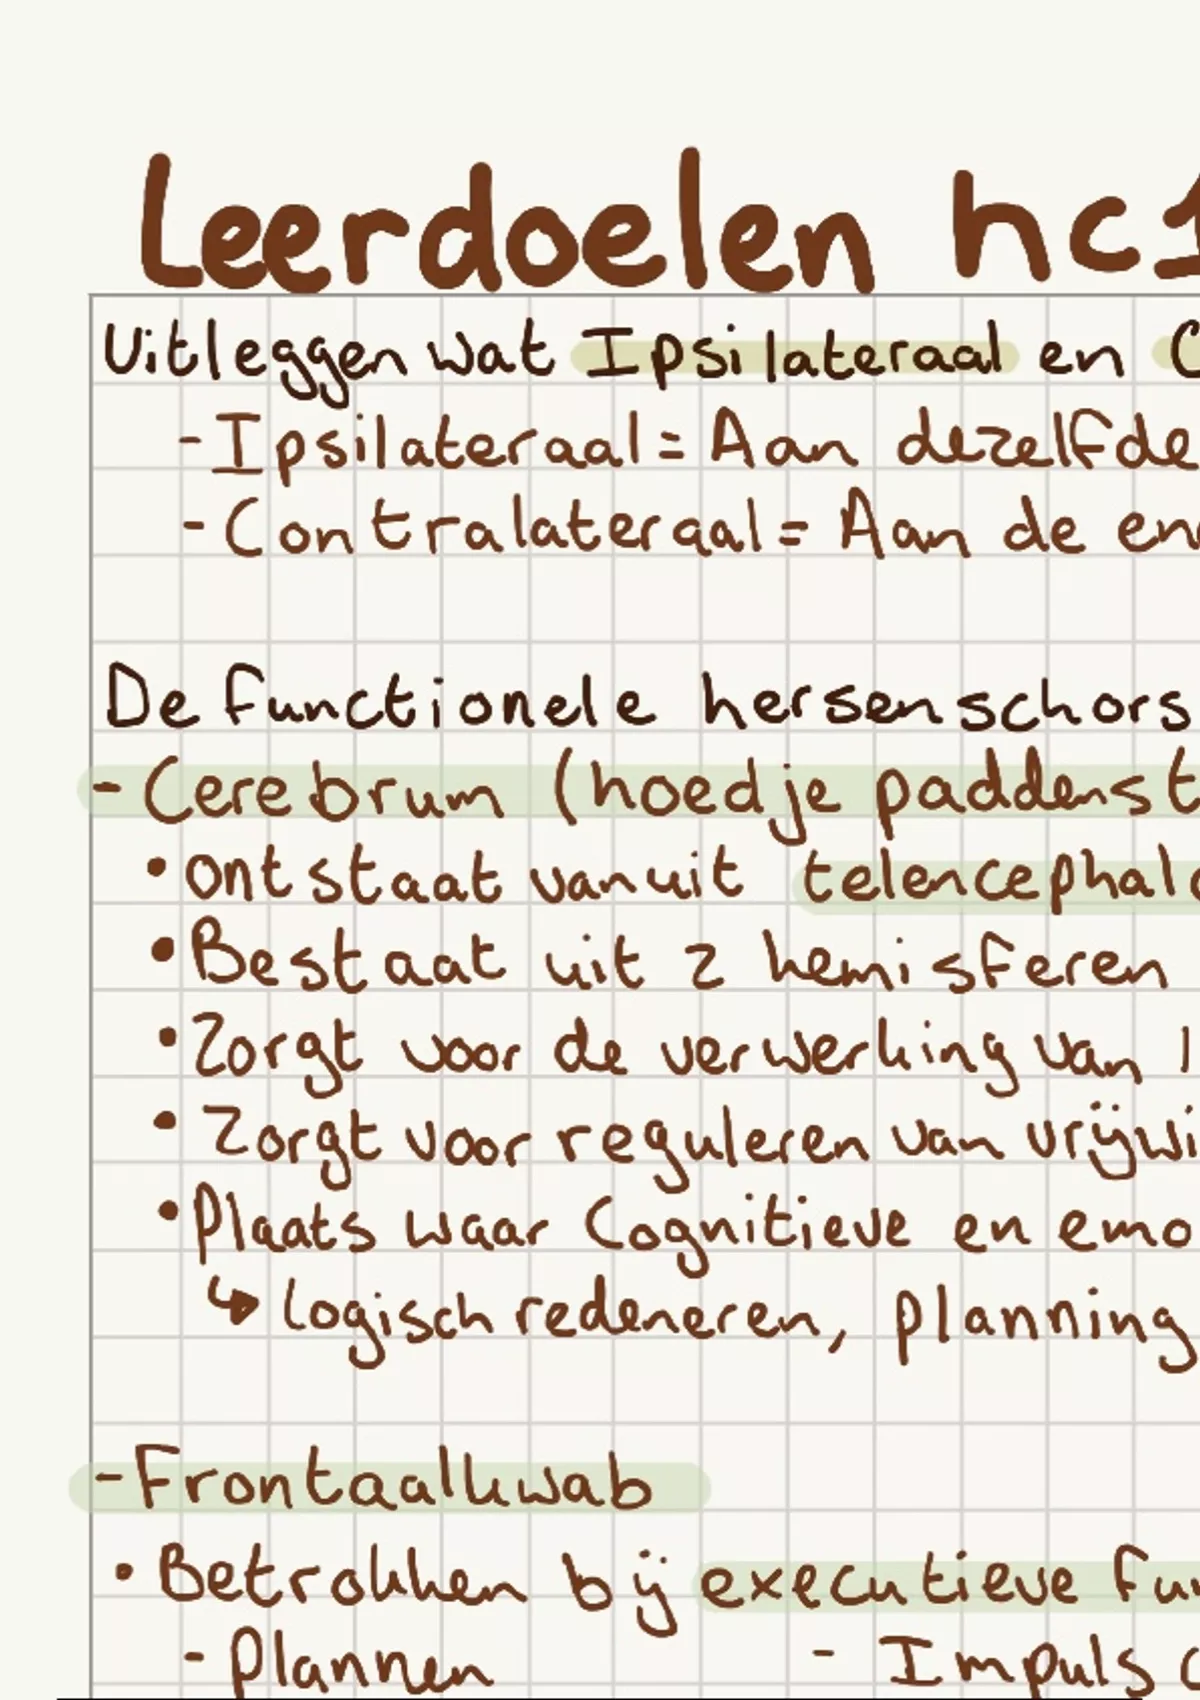 Leerdoelen hc1
Uitleggen wat Ipsilateraal en C
- Ipsilateraal = Aan dezelfde
- Contralateraal = Aan de en
De functionele hersenschors
- Cerebrum (hoedje paddenst
• ontstaat vanuit telencephal
• Bestaat uit 2 hemisferen
• Zorgt voor de verwerking van
• Zorgt voor reguleren van vrijwi
• Plaats waar Cognitieve en emo
↳ logisch redeneren, planning
- Frontaalkwab
• Betrokken bij executieve fun
- Plannen - Impuls c